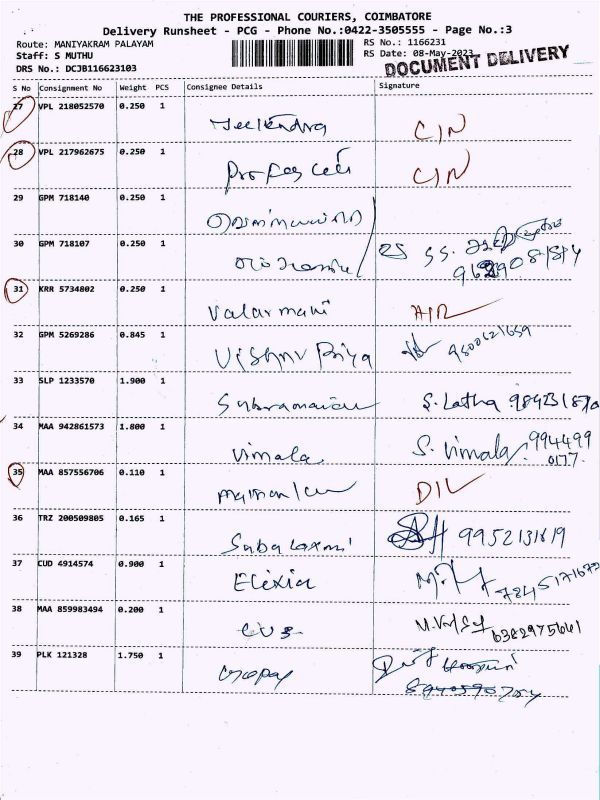 THE PROFESSIONAL COURIERS, COIMBATORE
Delivery Runsheet - PCG - Phone No.:0422-3505555 - Page No.:3
Route: MANIYAKRAM PALAYAM
RS No.: 1166231
Staff: S MUTHU
RS Date: 08-May-2023
DRS No.: DCJB116623103
DOCUMENT DELIVERY
S No Consignment No Weight PCS Consignee Details Signature
27 VPL 218052570 0.250 1 CIN
28 VPL 217962675 0.250 1 CIN
29 GPM 718140 0.250 1
30 GPM 718107 0.250 1
31 KRR 5734802 0.250 1 Valarmani AIR
32 GPM 5269286 0.845 1 Vishnu Priya 9800621659
33 SLP 1233570 1.900 1 S. Latha
34 MAA 942861573 1.800 1 Vimala S. Vimala 994499
0177.
35 MAA 857556706 0.110 1 DIL
36 TRZ 200509805 0.165 1 Subalaxmi 9952131819
37 CUD 4914574 0.900 1 Elexia
38 MAA 859983494 0.200 1 CUB 6382975661
39 PLK 121328 1.750 1 Gopal